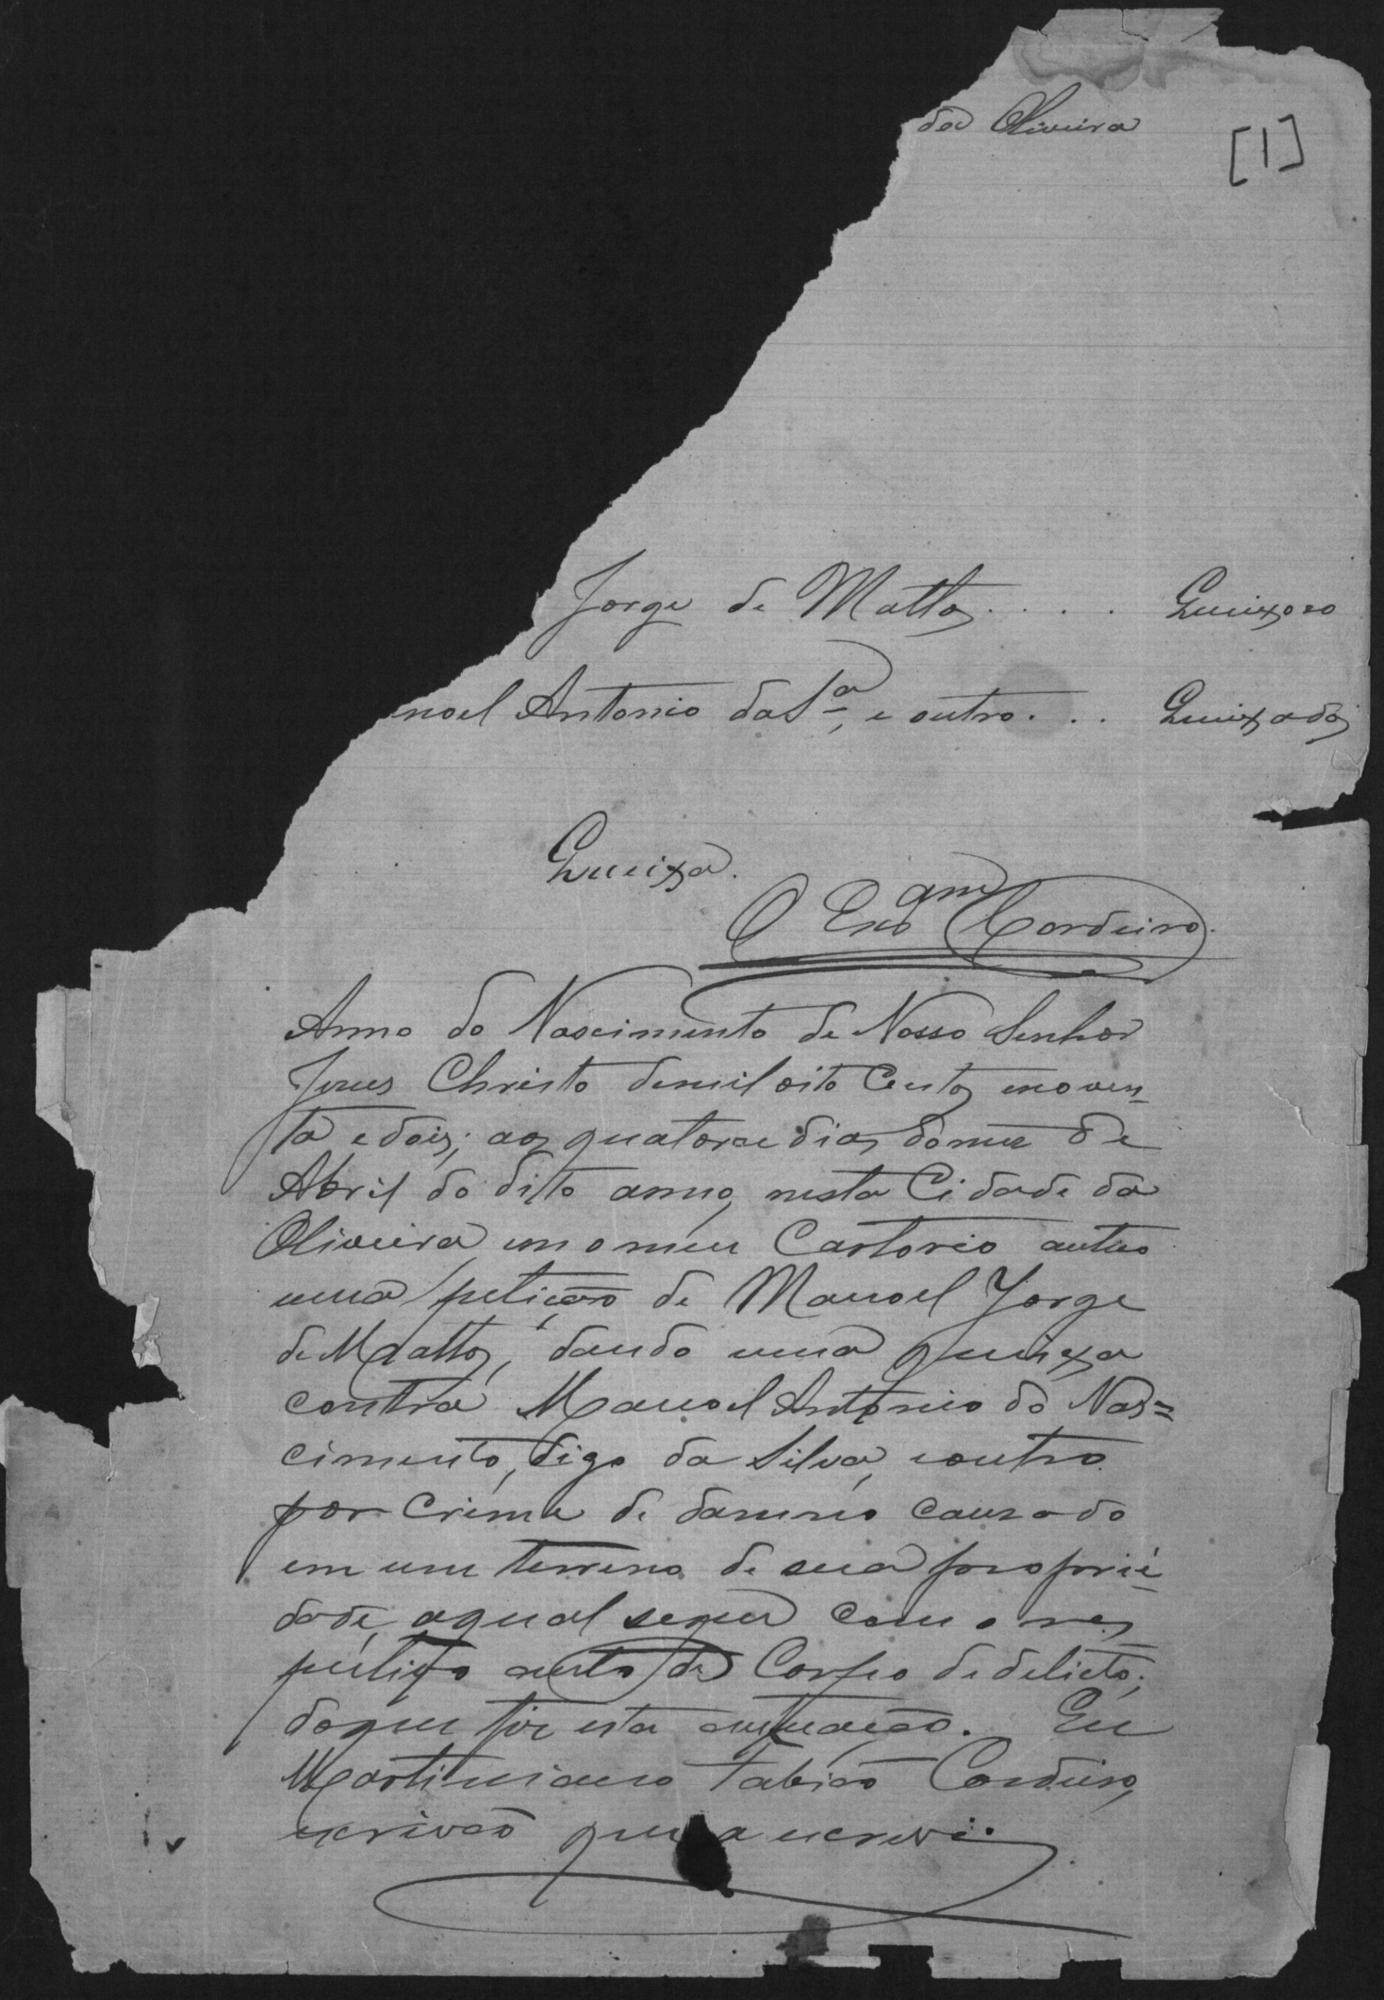 da Oliveira
[1]
Jorge de Mattos . . . . Queixoso
noel Antonio da Sª, e outro . . . Queixados
Queixa.
O Escam Cordeiro.
Anno do Nascimento de Nosso Senhor
Jesus Christo demil oito Centos enoven-
ta e dois; aos quatorze dias domez de
Abril do dito anno, nesta Cidade da
Oliveira emomeu Cartorio autuo
uma petição de Manoel Jorge
de Mattos, dando uma queixa
contra Manoel Antonio do Nas=
cimento, digo da Silva, eoutro
por crime de damno causado
em um terreno de sua proprie-
dade, aqual segue com o res
petivo auto de Corpo dedelicto;
doque fiz esta autuação. Eu
Martiniano Fabião Cordeiro,
escrivão que a escrevi.